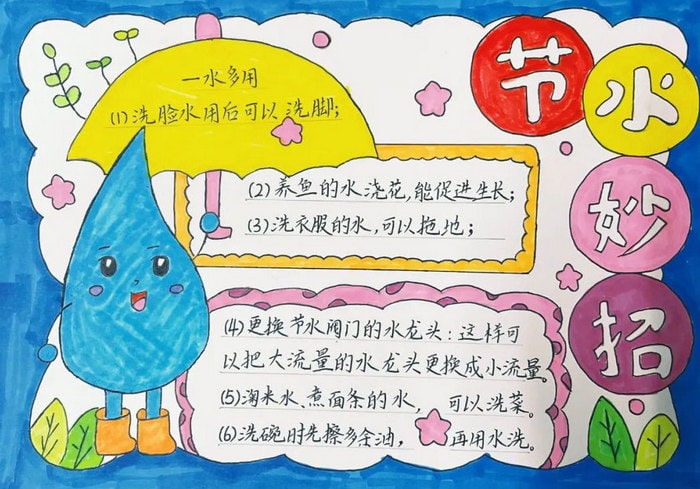 节水妙招
一水多用
(1)洗脸水用后可以洗脚;
(2)养鱼的水浇花,能促进生长;
(3)洗衣服的水,可以拖地;
(4)更换节水阀门的水龙头:这样可
以把大流量的水龙头更换成小流量。
(5)淘米水、煮面条的水, 可以洗菜。
(6)洗碗时先擦多余油, 再用水洗。